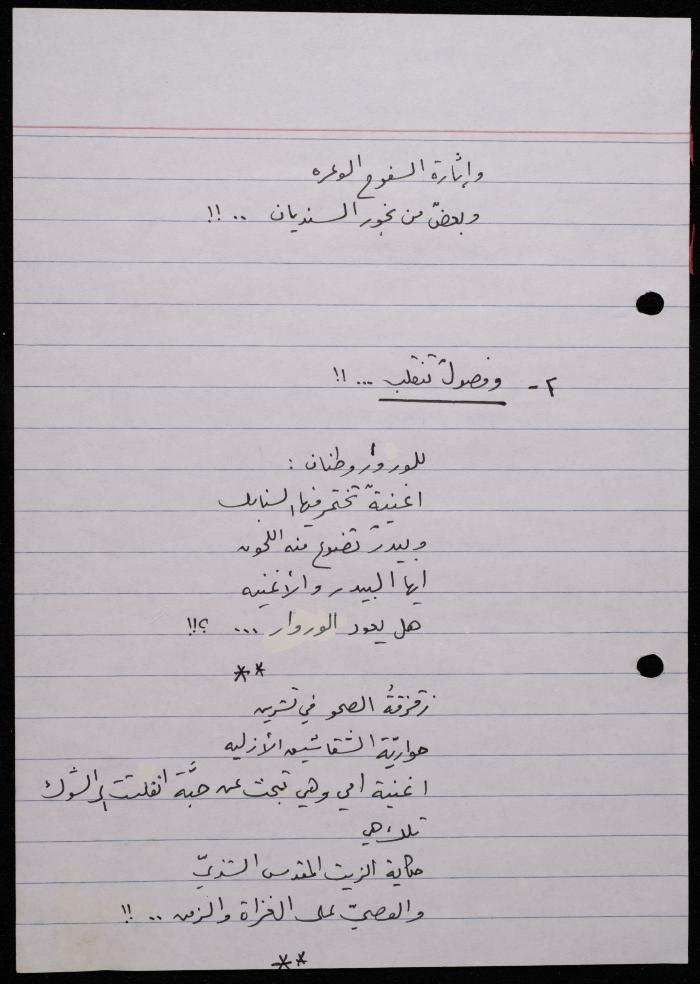 وإثارة السفوح الوعره
وبعضٌ من بخور السنديان .. !!
٢- وفصولٌ تنقلب ... !!
للوروار وطنان :
اغنيةٌ تختمر فيها السنابل
وبيدرٌ تضوع منه اللحون
ايها البيدر والأغنيه
هل يعود الوروار ... ؟!!
**
زقزقةُ الصحو في تشرين
حواريّة الشقاشيق الأزليه
اغنية امي وهي تبحث عن حبَّة انفلتت الى الشوك
تلك هي
حكاية الزيت المقدس الشذيّ
والعصيّ على الغزاة والزمن .. !!
**